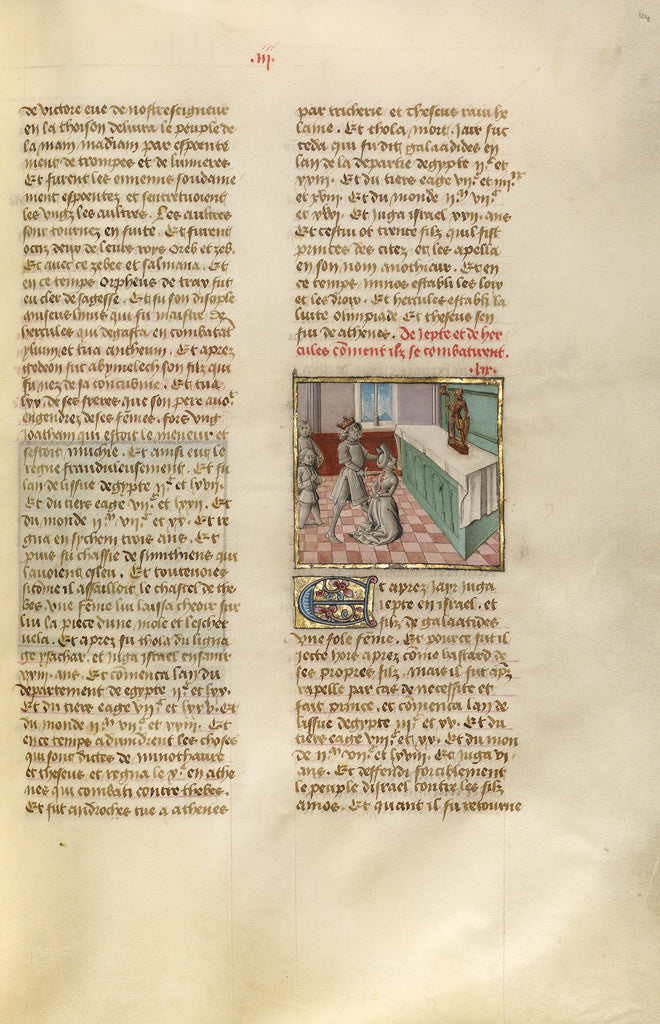 .III.
de victore eue de nostreseigneur
en la thoison delivra le peuple de
la main madiam par espoente
ment de trompes et de lumieres
Et furent les ennemis soudaine
ment espoentez et sentretuoient
les vngz les aultres. Les aultres
sont tournez en fuite. Et furent
occiz deux de leurs roys Oreb et zeb.
Et avec ce zebee et salmana. Et
en ce temps Orpheus de trax fut
eu cler de sagesse. Et fu son disciple
hercules qui degasta en combatāt
ylium et tua antheum. Et aprez
gedeon fut abymelech son filz qui
fu nez de sa concubine. Et tua
lxx de ses freres que son pere auoit
engendrez de ses fēmes. fors vng
Joatham qui estoit le meneur et
sestoit muchie. Et ainsi eut le
regne frauduleusement. Et fu
lan de lissue degypte IIc et lvii.
Et du tiers eage VIIc et lxxii. Et
du monde IIm VIIc et xx. Et re
gna en sychem trois ans. Et
puis fu chassie de simithiens qui
lauoient esleu. Et toutenoies
sicōme il assailloit le chastel de the
bes vne fēme luy laissa cheoir sur
luy la piece dune mole et lescher
uela. Et aprez fu thola du ligna
ge ysachar. et juga israel enfanir
xxiii. ans. Et cōmenca lan du
departement de egypte IIc et lxx.
Et du tiers eage VIIc et lxxxv. Et
du monde IIm VIIc et xxiii. Et
en ce temps aduindrent les choses
qui sont dictes de minothaure
et theseus et regna le Ve en athe
nes qui combati contre thebes.
Et fut androches tue a athenes
par tricherie et Theseus rauit he
laine. Et thola mort. Jair suc
ceda qui fu dit galaadides en
lan de la departie degypte IIc et
xviii. Et du tiers eage VIIc et IIIIxx
et xviii. Et du monde IIm VIIc
et xlvi. Et juga israel xxii. ans
Et cestui ot trente filz quil fist
princes des citez et les apella
en son nom anothiair. Et en
ce temps minos establi les loix
et les droix. Et hercules establi la
luite Olimpiade Et theseus sen
fui de athenes. De Jepte et de her
cules cōment ilz se combatirent.
.lix.
Et aprez Jayr juga
iepte en israel. et
filz de galaatides
dune fole fēme. Et pource fut il
jecte hors aprez cōme bastard de
ses propres filz. mais il fut aprez
rapelle par cas de necessite et
fait prince. et cōmenca lan de
lissue degypte IIIc et xv. Et du
tiers eage VIIIc et xv. Et du mon
de IIm VIIc et lxviii. Et juga vi
ans. Et deffendi forciblement
le peuple disrael contre les filz
amos. Et quant il fu retourne